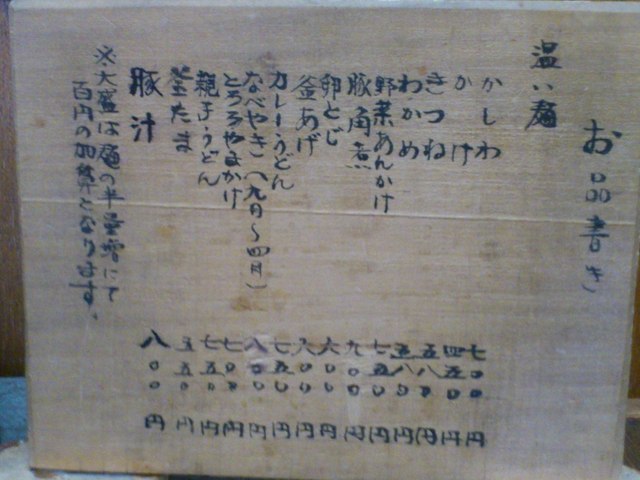 お品書き
温い麺
かしわ 七〇〇円
かけ 四五〇円
きつね 五八〇円
わかめ 五八〇円
野菜あんかけ 七五〇円
豚角煮 九〇〇円
卵とじ 六〇〇円
釜あげ 六〇〇円
カレーうどん 七五〇円
なべやき(九月〜四月) 八〇〇円
とろろやまかけ 七〇〇円
親子うどん 七五〇円
釜たま 五五〇円
豚汁 八〇〇円
※大盛は麺の半量増にて
百円の加算となります。